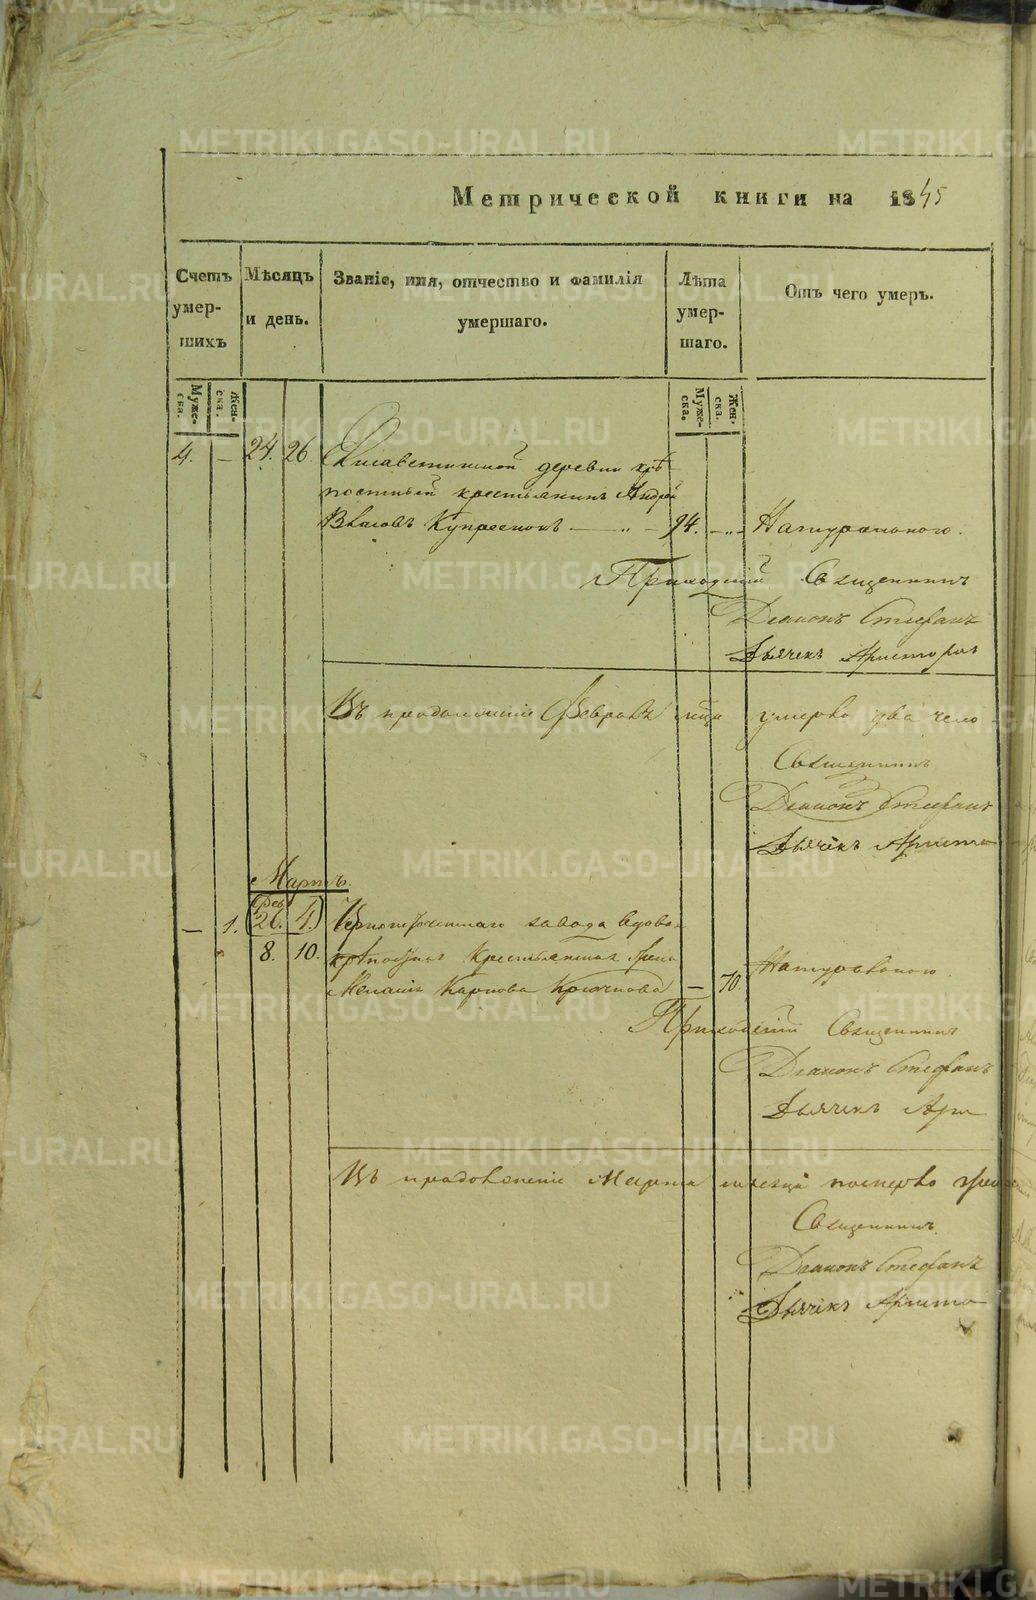 Метрической книги на 1845
Счетъ умер- шихъ
Мѣсяцъ и день.
Званіе, имя, отчество и фамилія умершаго.
Лѣта умер- шаго.
Отъ чего умеръ.
Муже- ска.
Жен- ска.
Муже- ска.
Жен- ска.
4. — 24. 26. Елисаветинской деревни крѣ-
постный крестьянинъ Андрей
Власовъ — „ — 94. — „ — Натуральною.
Приходскій Священникъ
Діаконъ Стефанъ
Дьячекъ
Въ продолженіе Февраля мца умерло два чело
Священникъ
Діаконъ Стефанъ
Дьячекъ
Мартъ.
Фев.
— 1. 26. 4. завода вдова
8. 10. крестьянская жена
Меланія Карпова — 70. Натуральною.
Приходскій Священникъ
Діаконъ Стефанъ
Дьячекъ
Въ продолженіе Марта месяца
Священникъ
Діаконъ Стефанъ
Дьячекъ
METRIKI.GASO-URAL.RU